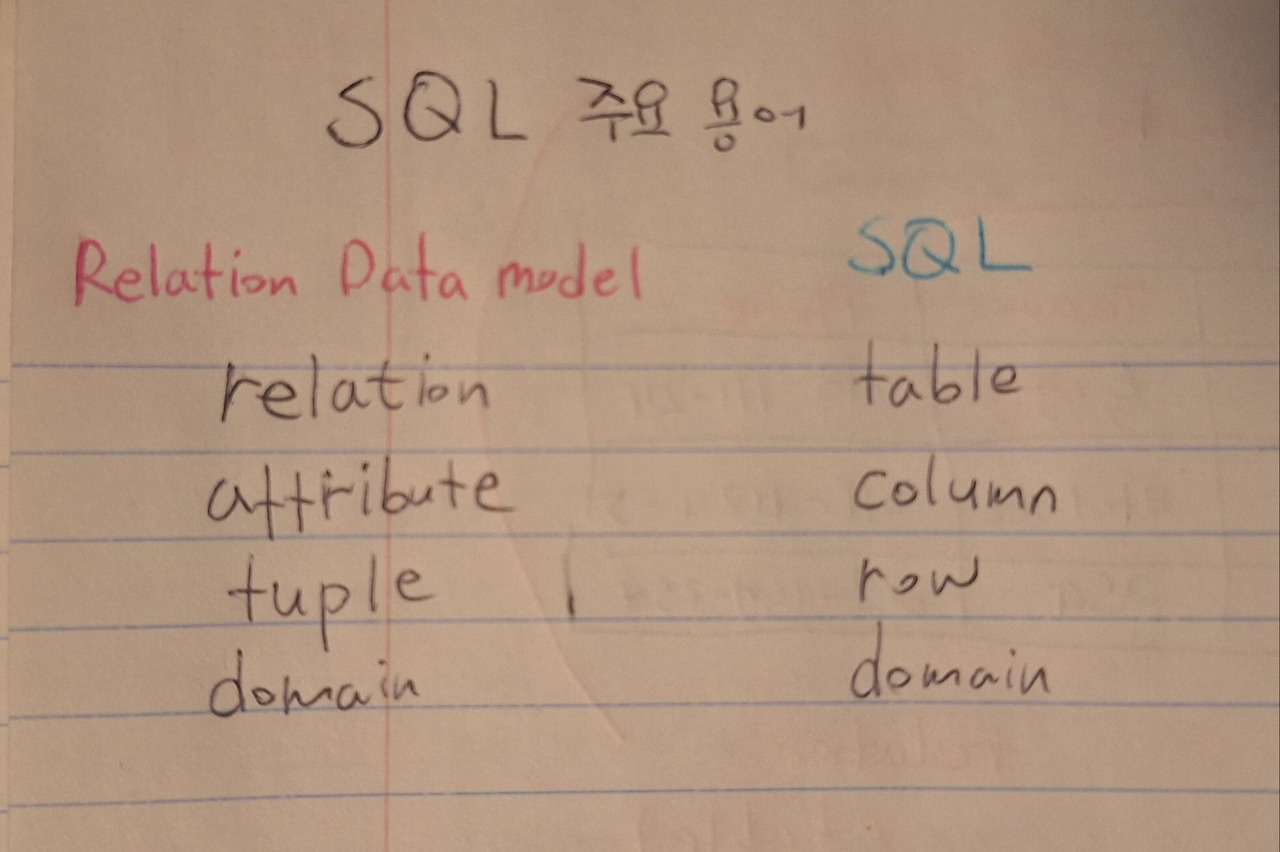 SQL 주요 용어
Relation Data model SQL
relation table
attribute column
tuple row
domain domain